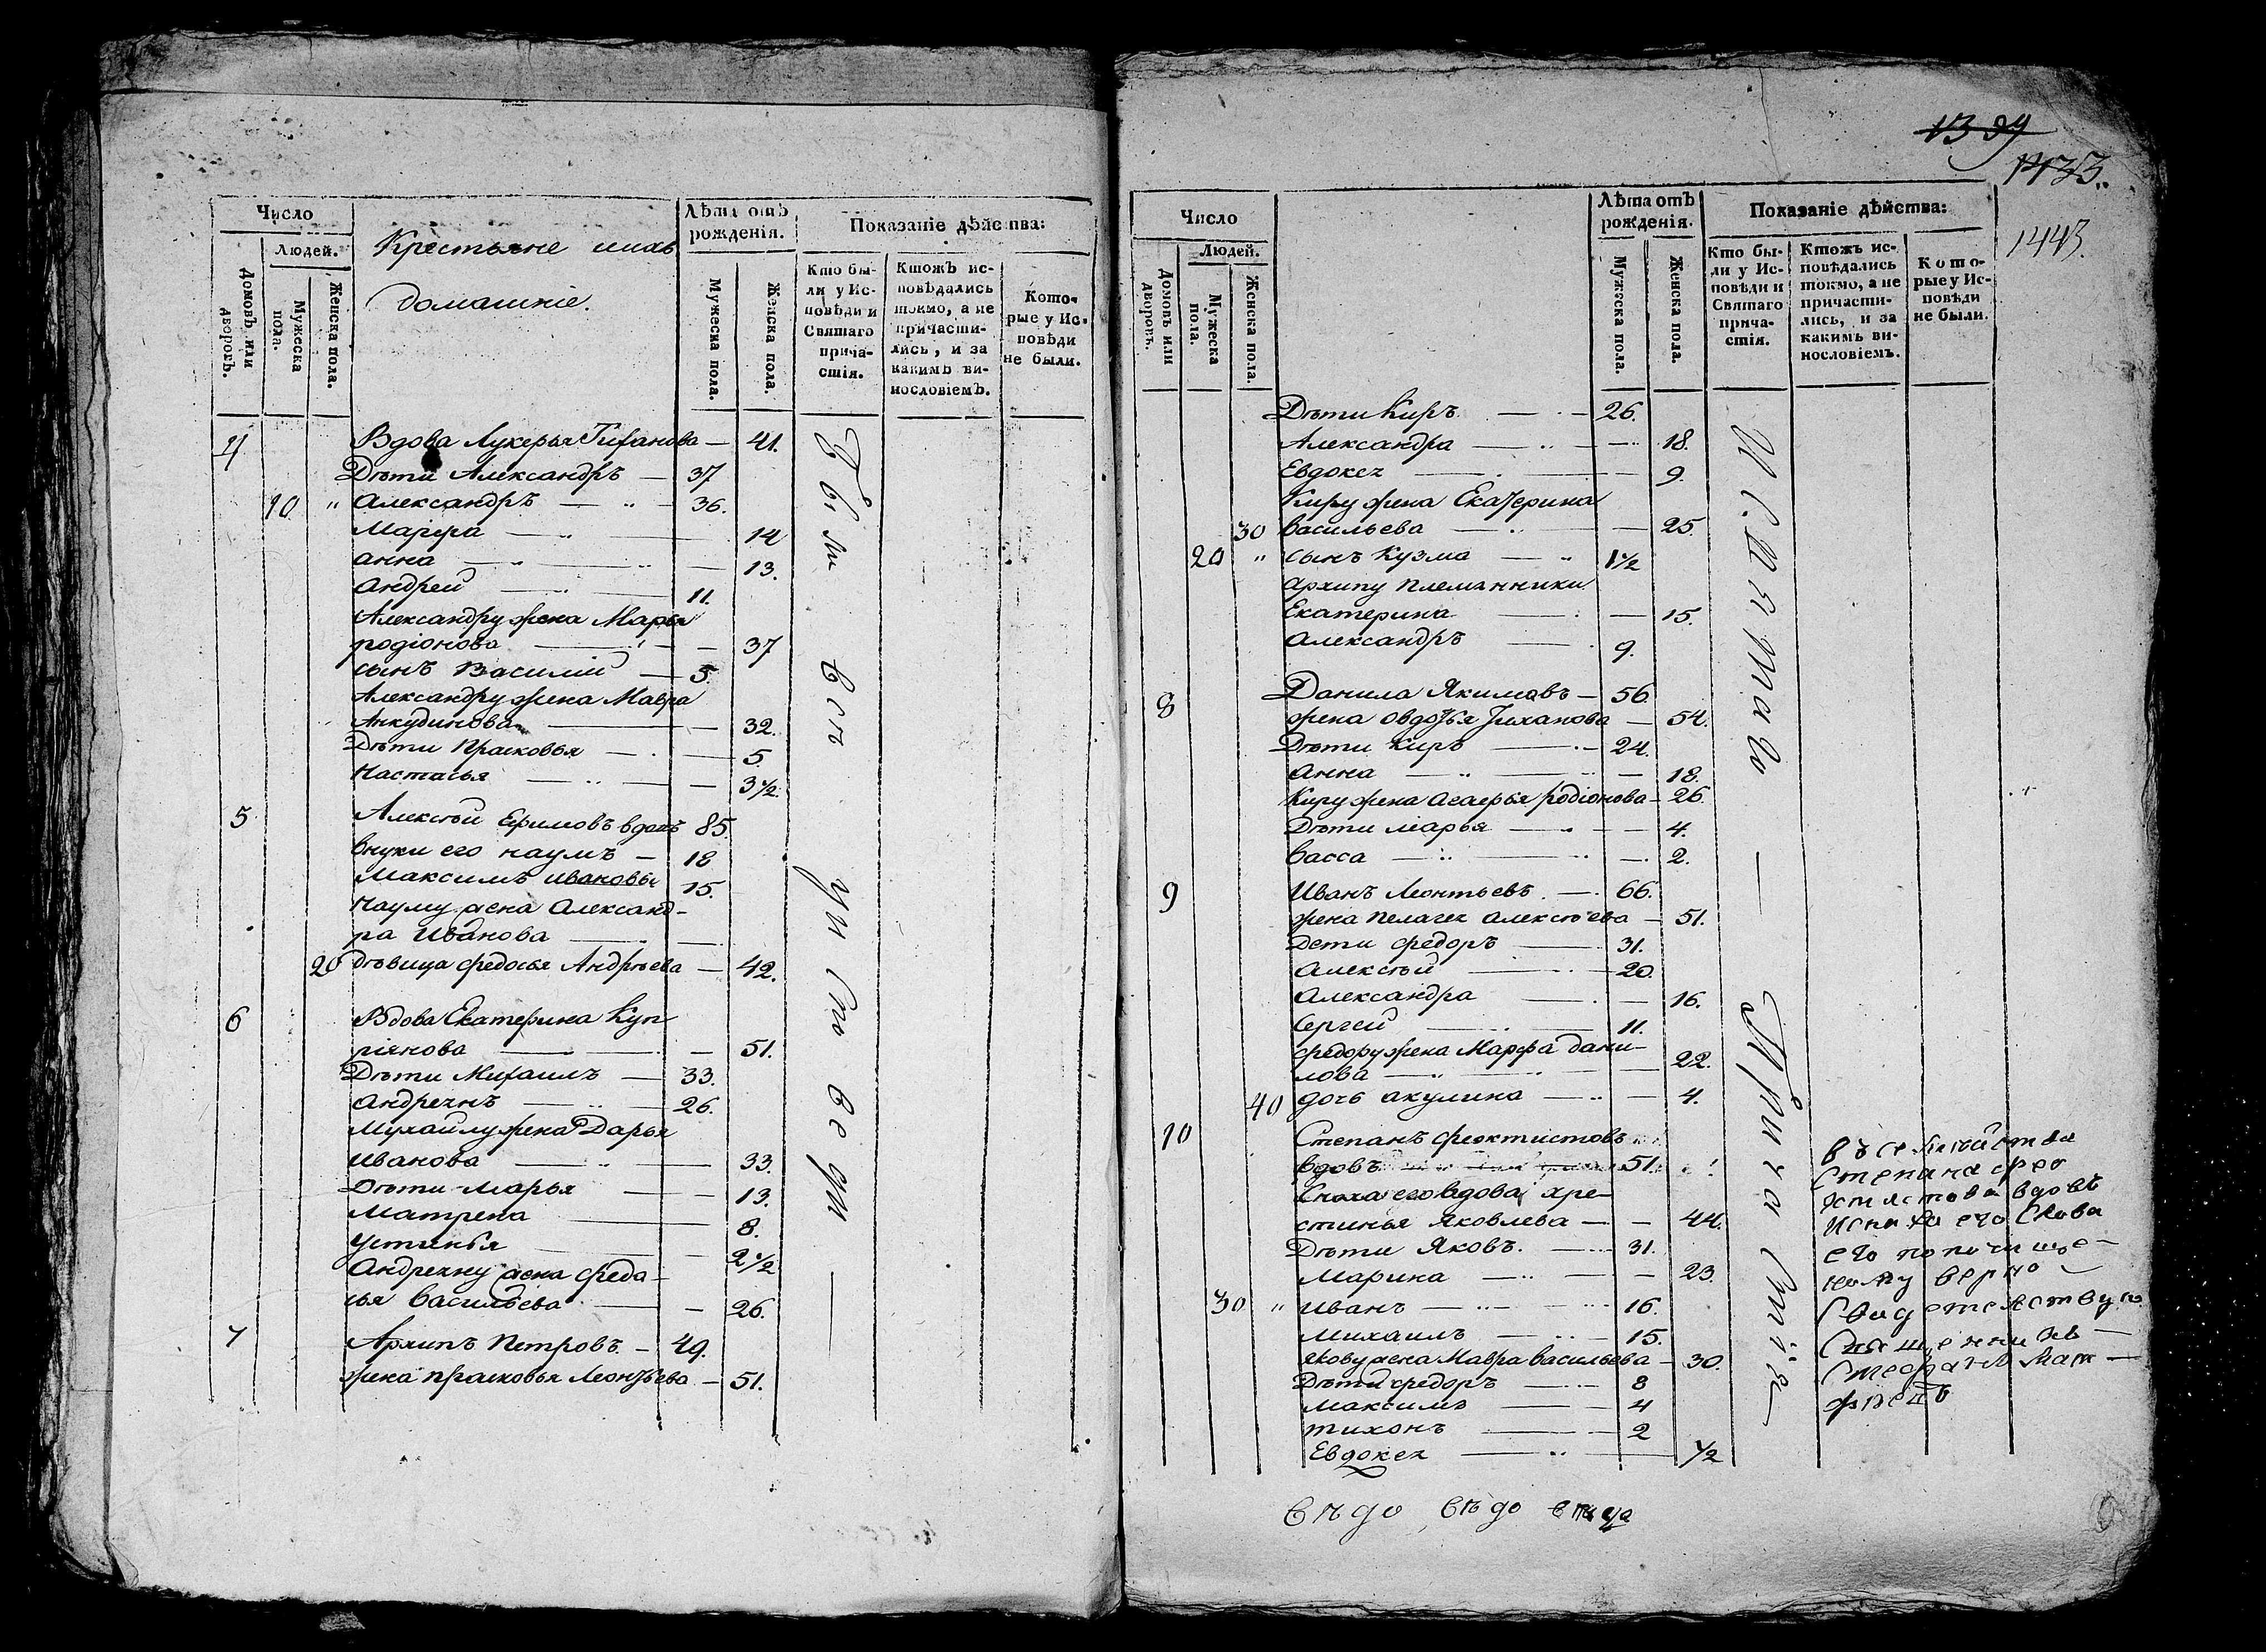 Число
Людей.
Домовъ или дворовъ.
Мужеска пола.
Женска пола.
Крестьяне ихъ
домашніе.
Лѣта отъ рожденія.
Мужеска пола.
Женска пола.
Показаніе дѣйства:
Кто были у Исповѣди и Святаго причастія.
Ктожъ исповѣдались токмо, а не причастились, и за какимъ винословіемъ.
Которые у Исповѣди не были.
4 Вдова Лукерья Тифанова — 41.
Дѣти Александръ — 37
10 " Александръ — 36.
Марфа — 14
Анна — 13.
Андрей — 11.
Александру жена Марья
родіонова — 37
сынъ Василій — 5.
Александру жена Мавра
Анкудинова — 32.
Дѣти Прасковья — 5
Настасья — 3 1/2.
5 Алексѣй Ефимовъ вдовъ 85.
внуки его наумъ — 18
Максимъ Ивановы 15.
Науму жена Александ-
ра Иванова —
20 дѣвица федосья Андрѣева — 42.
6 Вдова Екатерина Куп
ріянова — 51.
Дѣти Михаилъ — 33.
Андреянъ — 26.
Михайлу жена Дарья
Иванова — 33.
Дѣти Марья — 13.
Матрена — 8.
Устинья — 2 1/2
Андреяну жена федо-
сья Васильева — 26.
7 Архипъ Петровъ — 49.
жена прасковья Леонтьева — 51.
1399
1433.
1443.
Число
Людей.
Домовъ или дворовъ.
Мужеска пола.
Женска пола.
Лѣта отъ рожденія.
Мужеска пола.
Женска пола.
Показаніе дѣйства:
Кто были у Исповѣди и Святаго причастія.
Ктожъ исповѣдались токмо, а не причастились, и за какимъ винословіемъ.
Которые у Исповѣди не были.
Дѣти Киръ — 26.
Александра — 18.
Евдокея — 9.
Киру жена Екатерина
30 Васильева — 25.
20 " сынъ Кузма — 1 1/2
Архипу племянники
Екатерина — 15.
Александръ — 9.
8 Данила Якимовъ — 56.
жена овдотья Тиханова — 54.
Дѣти Киръ — 24.
Анна — 18.
Киру жена Агафья родіонова — 26.
Дѣти марья — 4.
Васса — 2.
9 Иванъ Леонтьевъ — 66.
жена Пелагея Алексѣева — 51.
Дети федоръ — 31.
Алексѣй — 20.
Александра — 16.
Сергей — 11.
федору жена Марфа дани-
лова — 22.
40 дочь акулина — 4.
10 Степанъ феоктистовъ
вдовъ 51.
Сноха его вдова хре-
стинья Яковлева — 44.
Дѣти Яковъ — 31.
Марина — 23.
30 " Иванъ — 16.
Михаилъ — 15.
Якову жена Мавра Васильева — 30.
Дѣти федоръ — 8
Максимъ — 4
тихонъ — 2
Евдокея — 1/2
исповеди
Причастія
Степана фео
вдовъ
его
верно